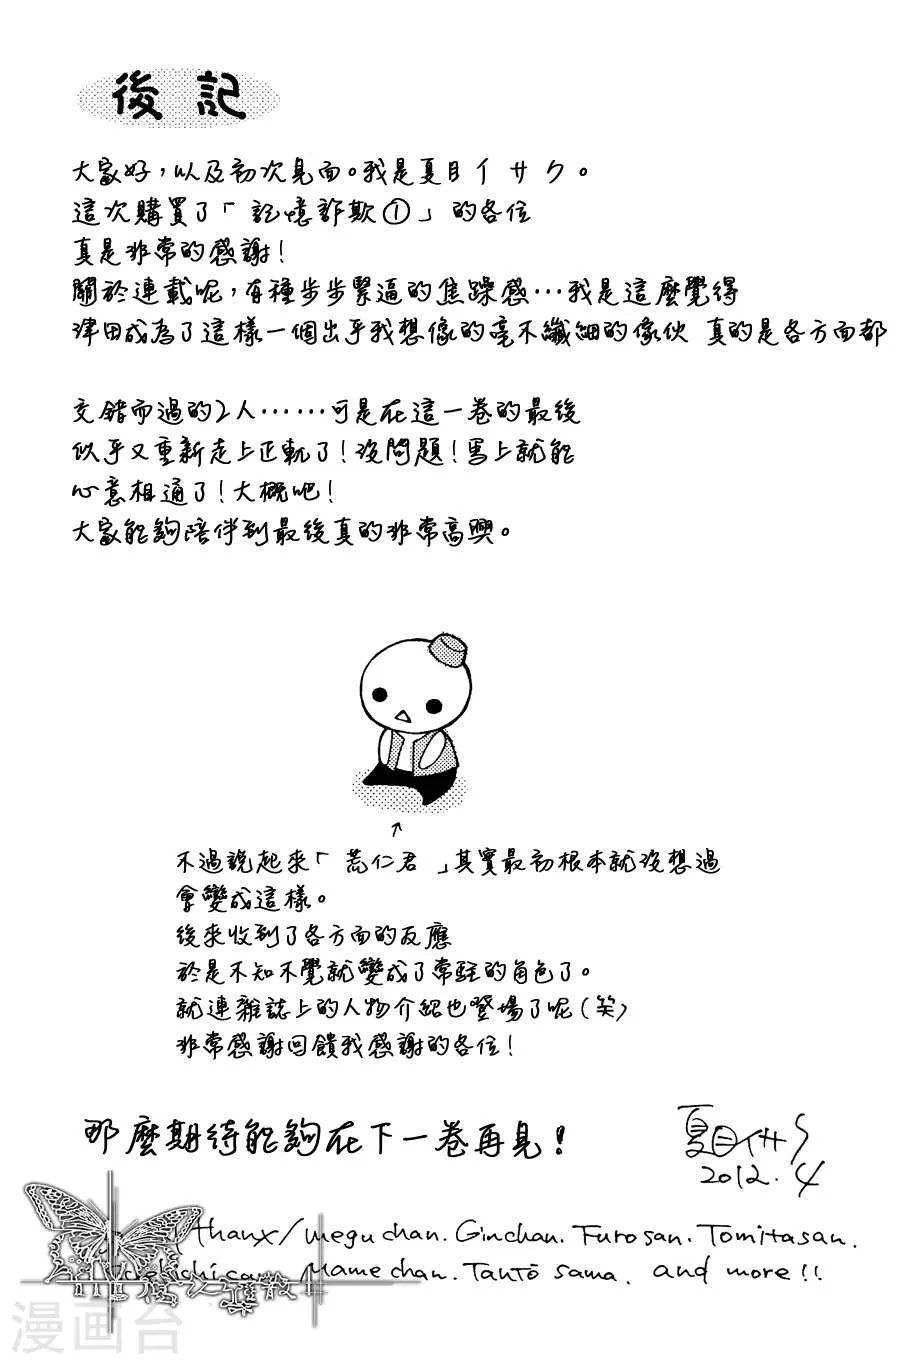 後記
大家好，以及初次見面。我是夏目イサク。
這次購買了「記憶詐欺①」的各位
真是非常的感謝！
關於連載呢，有種步步緊逼的焦躁感…我是這麼覺得
津田成為了這樣一個出乎我想像的毫不纖細的傢伙 真的是各方面都
交錯而過的2人……可是在這一卷的最後
似乎又重新走上正軌了！沒問題！馬上就能
心意相通了！大概吧！
大家能夠陪伴到最後真的非常高興。
不過說起來「荒仁君」其實最初根本就沒想過
會變成這樣。
後來收到了各方面的反應
於是不知不覺就變成了常駐的角色了。
就連雜誌上的人物介紹也登場了呢（笑）
非常感謝回饋我感謝的各位！
那麼期待能夠在下一卷再見！
夏目イサク
2012.4
thanx/meguchan. Ginchan. Furosan. Tomitasan.
Mamechan. Tantō sama. and more!!
漫画台